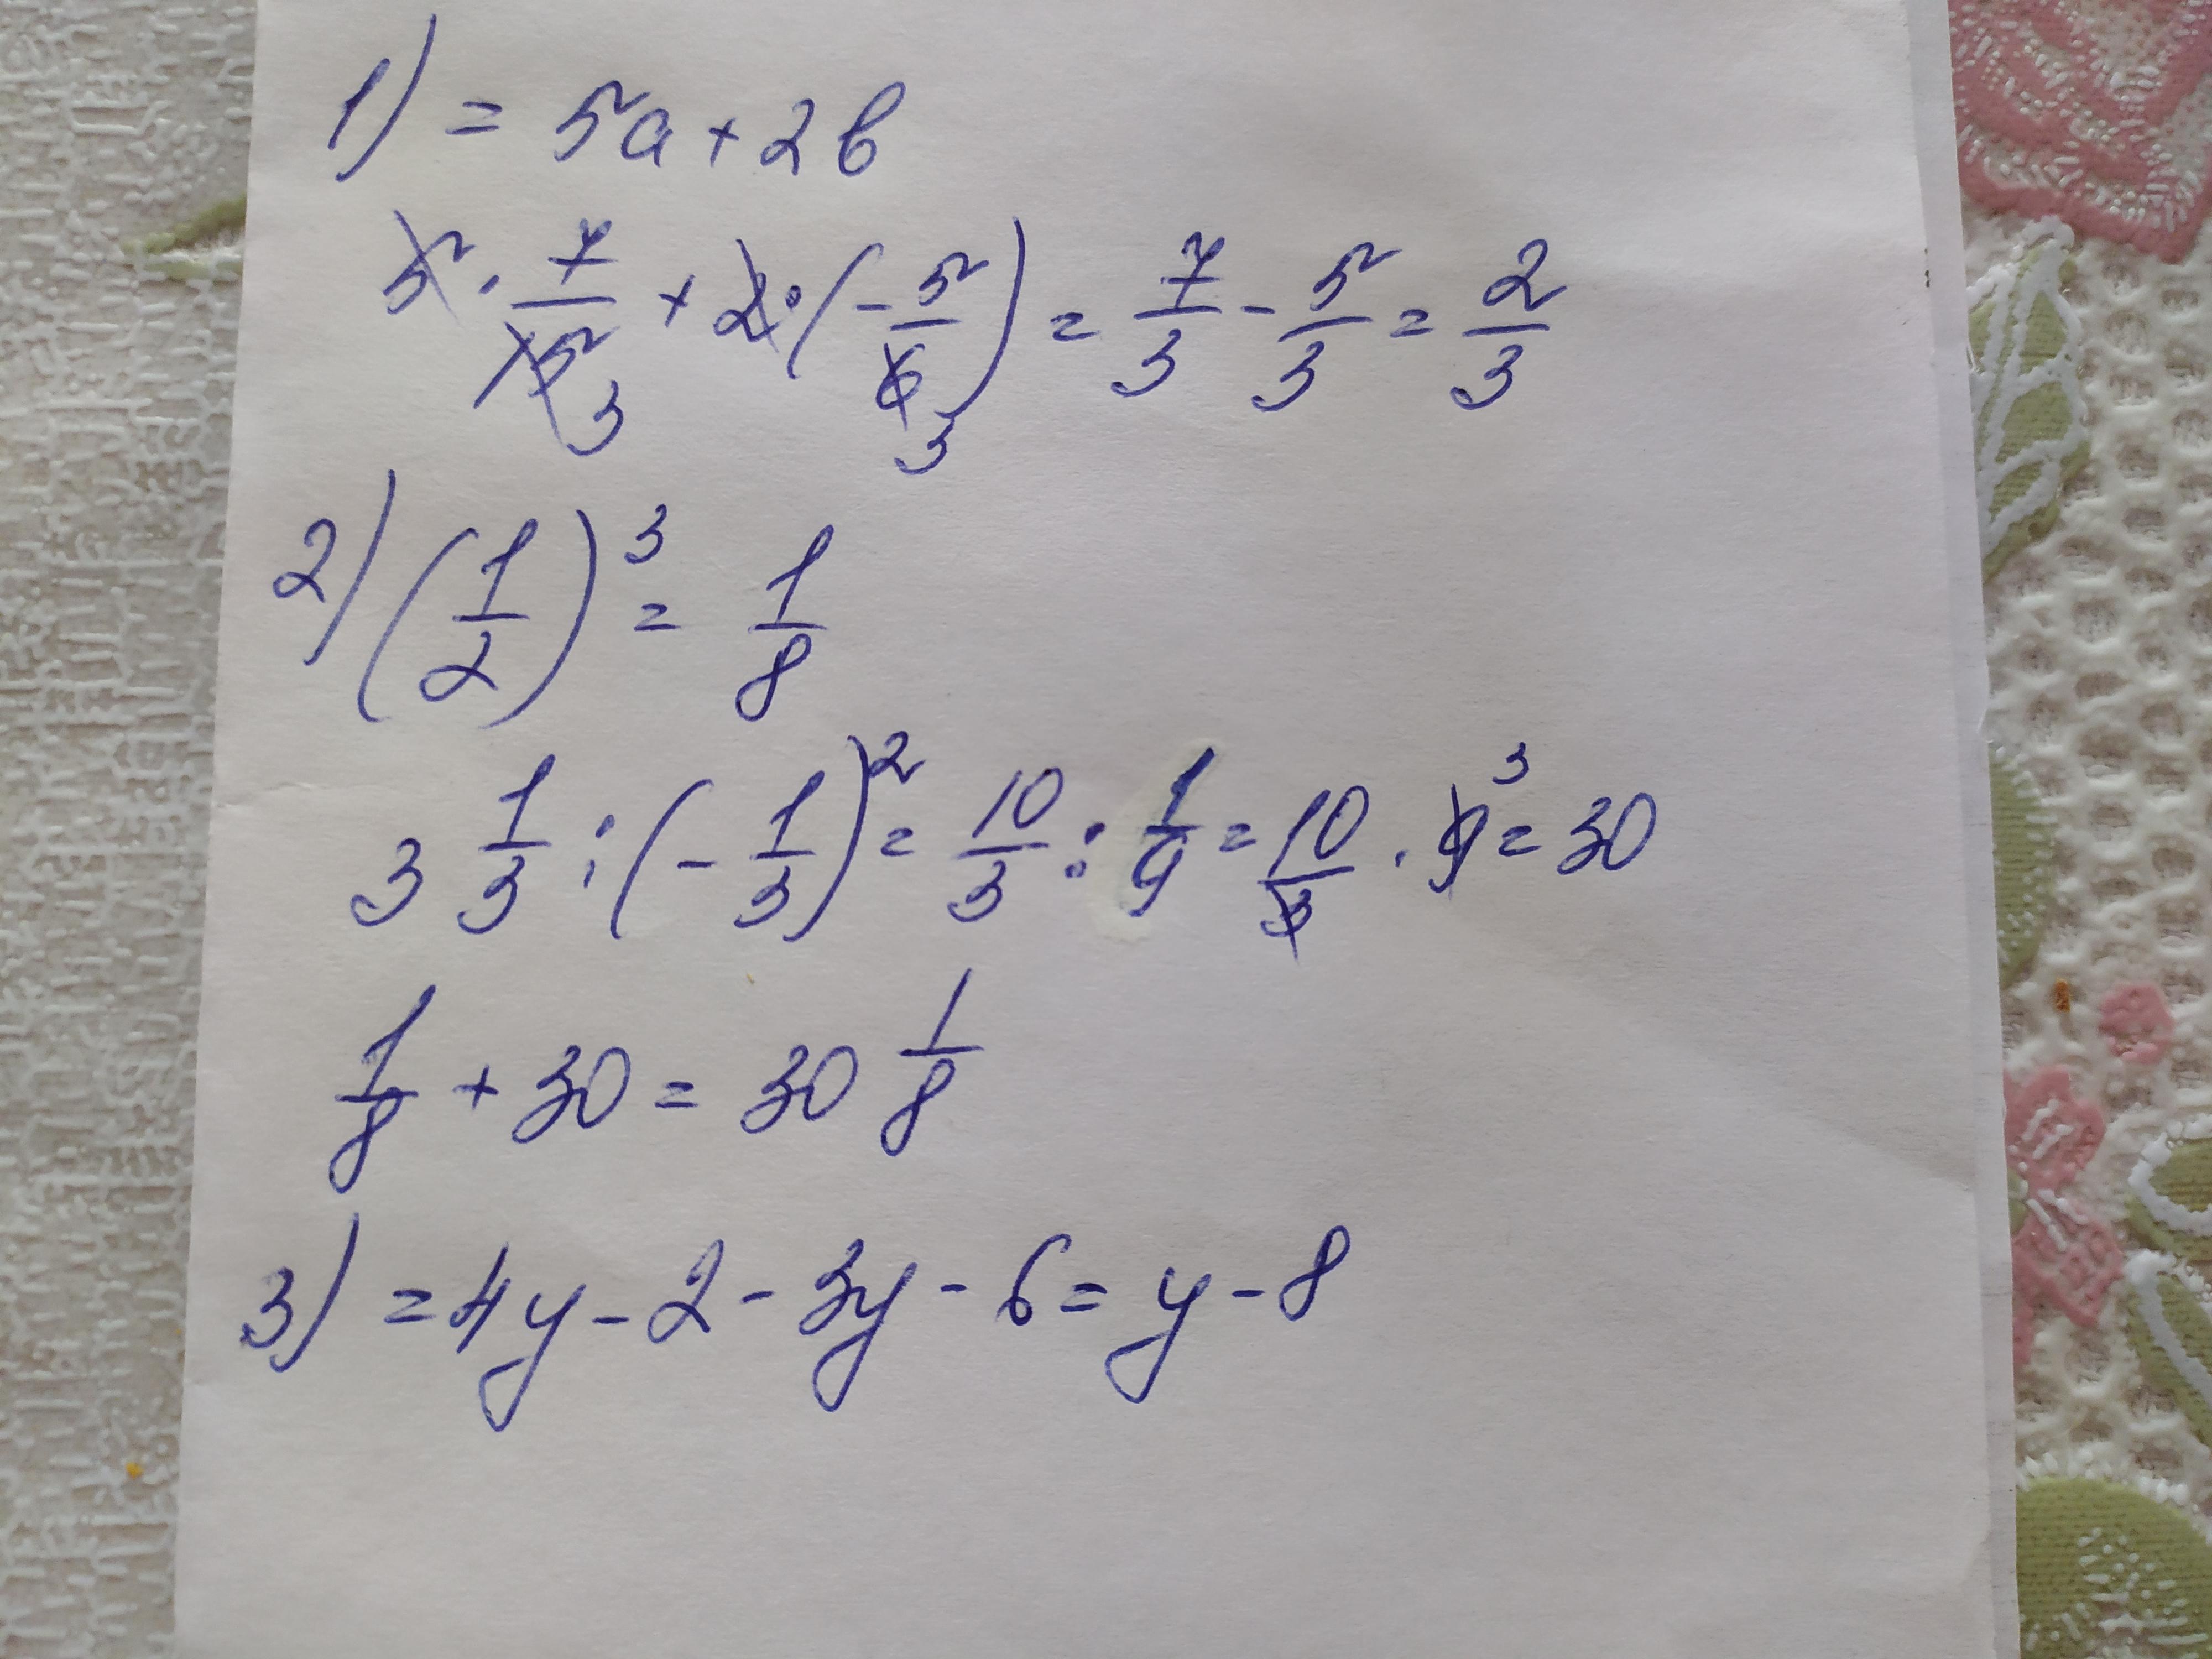 1) = 5a + 2b
5 · 7/15 3 + 2 · (-5/6 3) = 7/3 - 5/3 = 2/3
2) (1/2)³ = 1/8
3 1/3 : (-1/3)² = 10/3 : 1/9 = 10/3 · 9 3 = 30
1/8 + 30 = 30 1/8
3) = 4y - 2 - 3y - 6 = y - 8